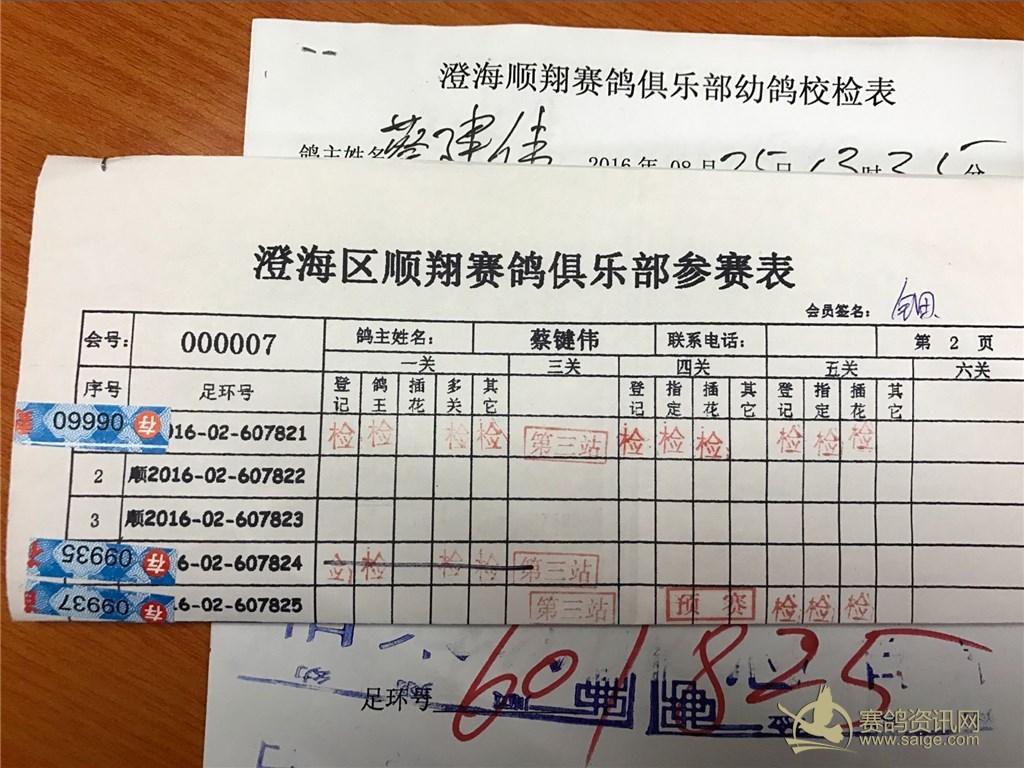 澄海顺翔赛鸽俱乐部幼鸽校检表
鸽主姓名 蔡建伟 2016年 08月25日 13时35分
澄海区顺翔赛鸽俱乐部参赛表
会员签名:
会号: 000007 鸽主姓名: 蔡键伟 联系电话: 第 2 页
一关 三关 四关 五关 六关
序号 足环号 登记 鸽王 插花 多关 其它 登记 指定 插花 其它 登记 指定 插花 其它
06660 存 016-02-607821 检 检 检 检 第三站 检 检 检 检 检 检
2 顺2016-02-607822
3 顺2016-02-607823
09935 存 6-02-607824 检 检 检 第三站
09937 存 16-02-607825 第三站 预赛 检 检 检
足环号 601825
赛鸽资讯网
www.saige.com